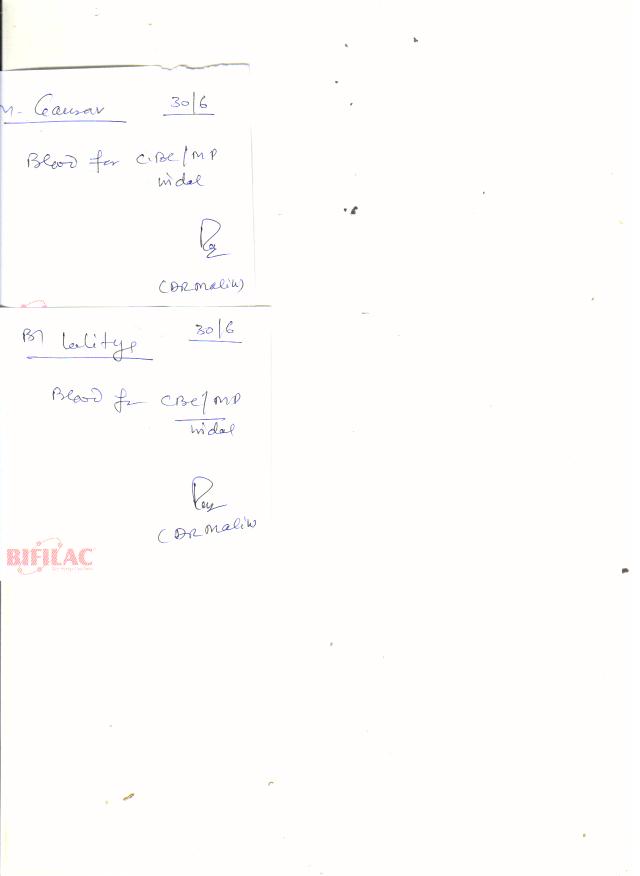 M. Gausar 30/6
Blood for CBC/MP
Widal
(DR Malik)
Lalitya 30/6
Blood for CBC/MP
Widal
(DR Malik)
BIFILAC